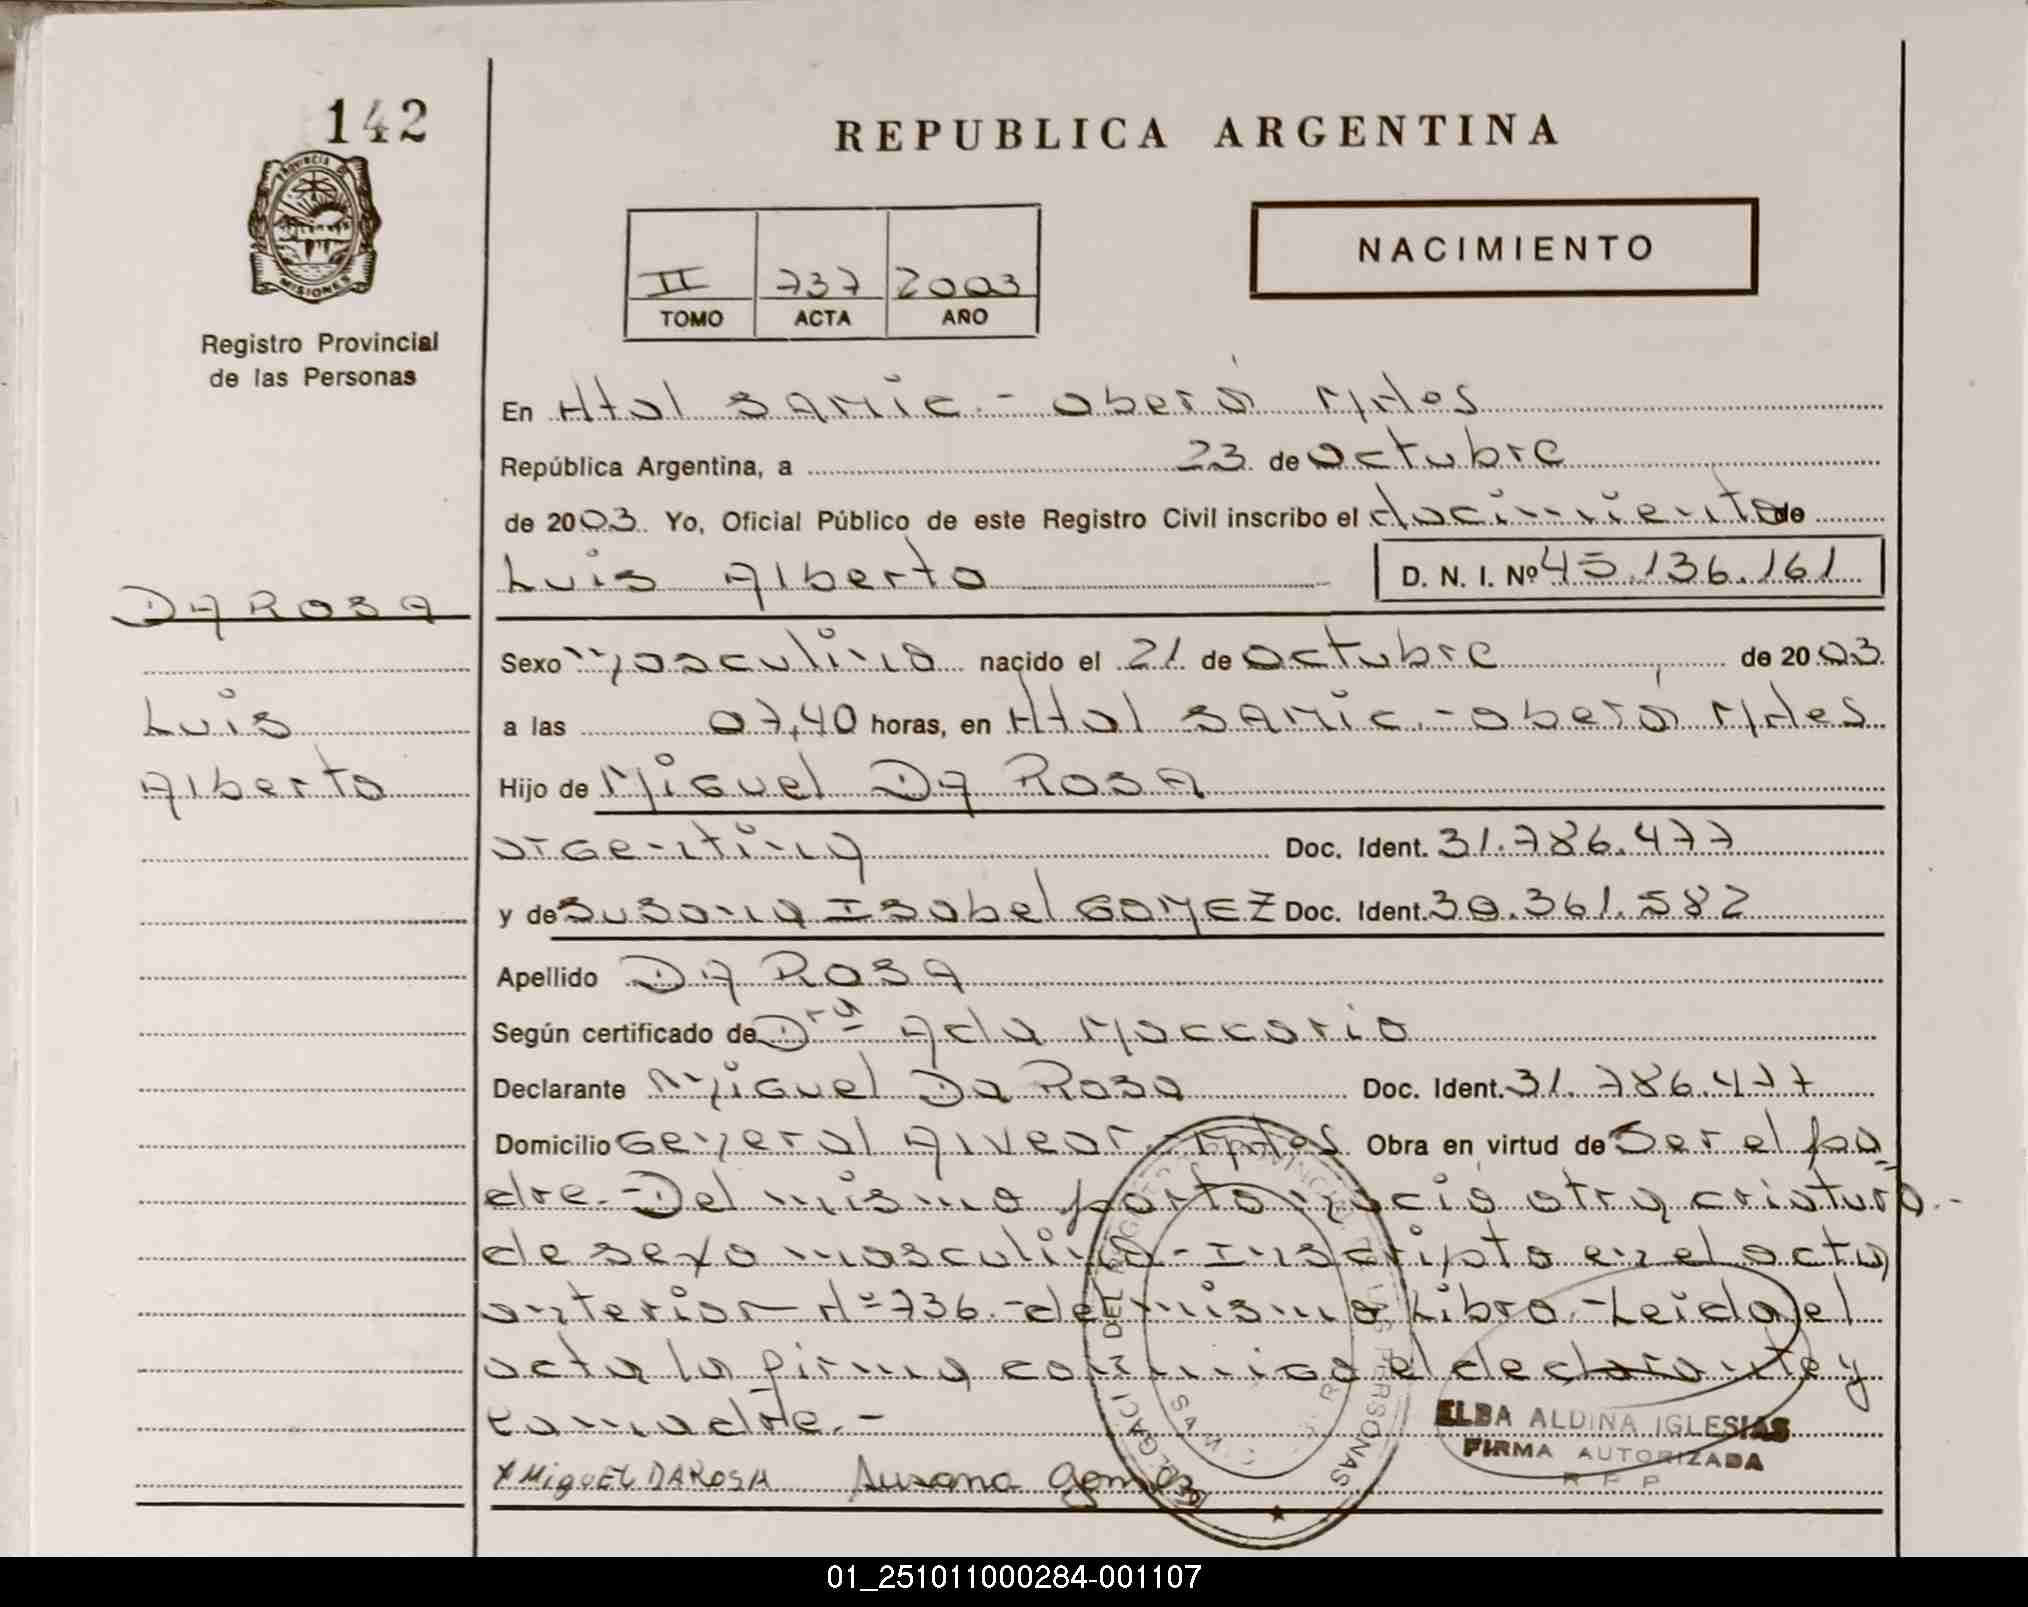 142
PROVINCIA DE
MISIONES
Registro Provincial
de las Personas
REPUBLICA ARGENTINA
II 737 2003
TOMO ACTA AÑO
NACIMIENTO
En Htal SAMIC - Oberá Mnes
República Argentina, a 23 de Octubre
de 2003 Yo, Oficial Público de este Registro Civil inscribo el Nacimiento de
Luis Alberto D. N. I. Nº 45.136.161
DA ROSA
Luis
Alberto
Sexo Masculino nacido el 21 de Octubre de 2003
a las 07,40 horas, en Htal SAMIC - Oberá Mnes
Hijo de Miguel DA ROSA
argentina Doc. Ident. 31.786.477
y de Susana Isabel GOMEZ Doc. Ident. 30.361.582
Apellido DA ROSA
Según certificado de Dra Ada Maccario
Declarante Miguel Da Rosa Doc. Ident. 31.786.477
Domicilio General Alvear - Mnes Obra en virtud de Ser el pa-
dre.- Del mismo parto nació otra criatura.-
de sexo masculino - Inscripto en el acta
anterior Nº 736.- del mismo Libro.- Leida el
acta la firma conmigo el declarante y
la madre.-
x MiguEL DAROSA Susana Gomez
DEL REGISTRO PROVINCIAL DE LAS PERSONAS
ELBA ALDINA IGLESIAS
FIRMA AUTORIZADA
R P P
01_251011000284-001107